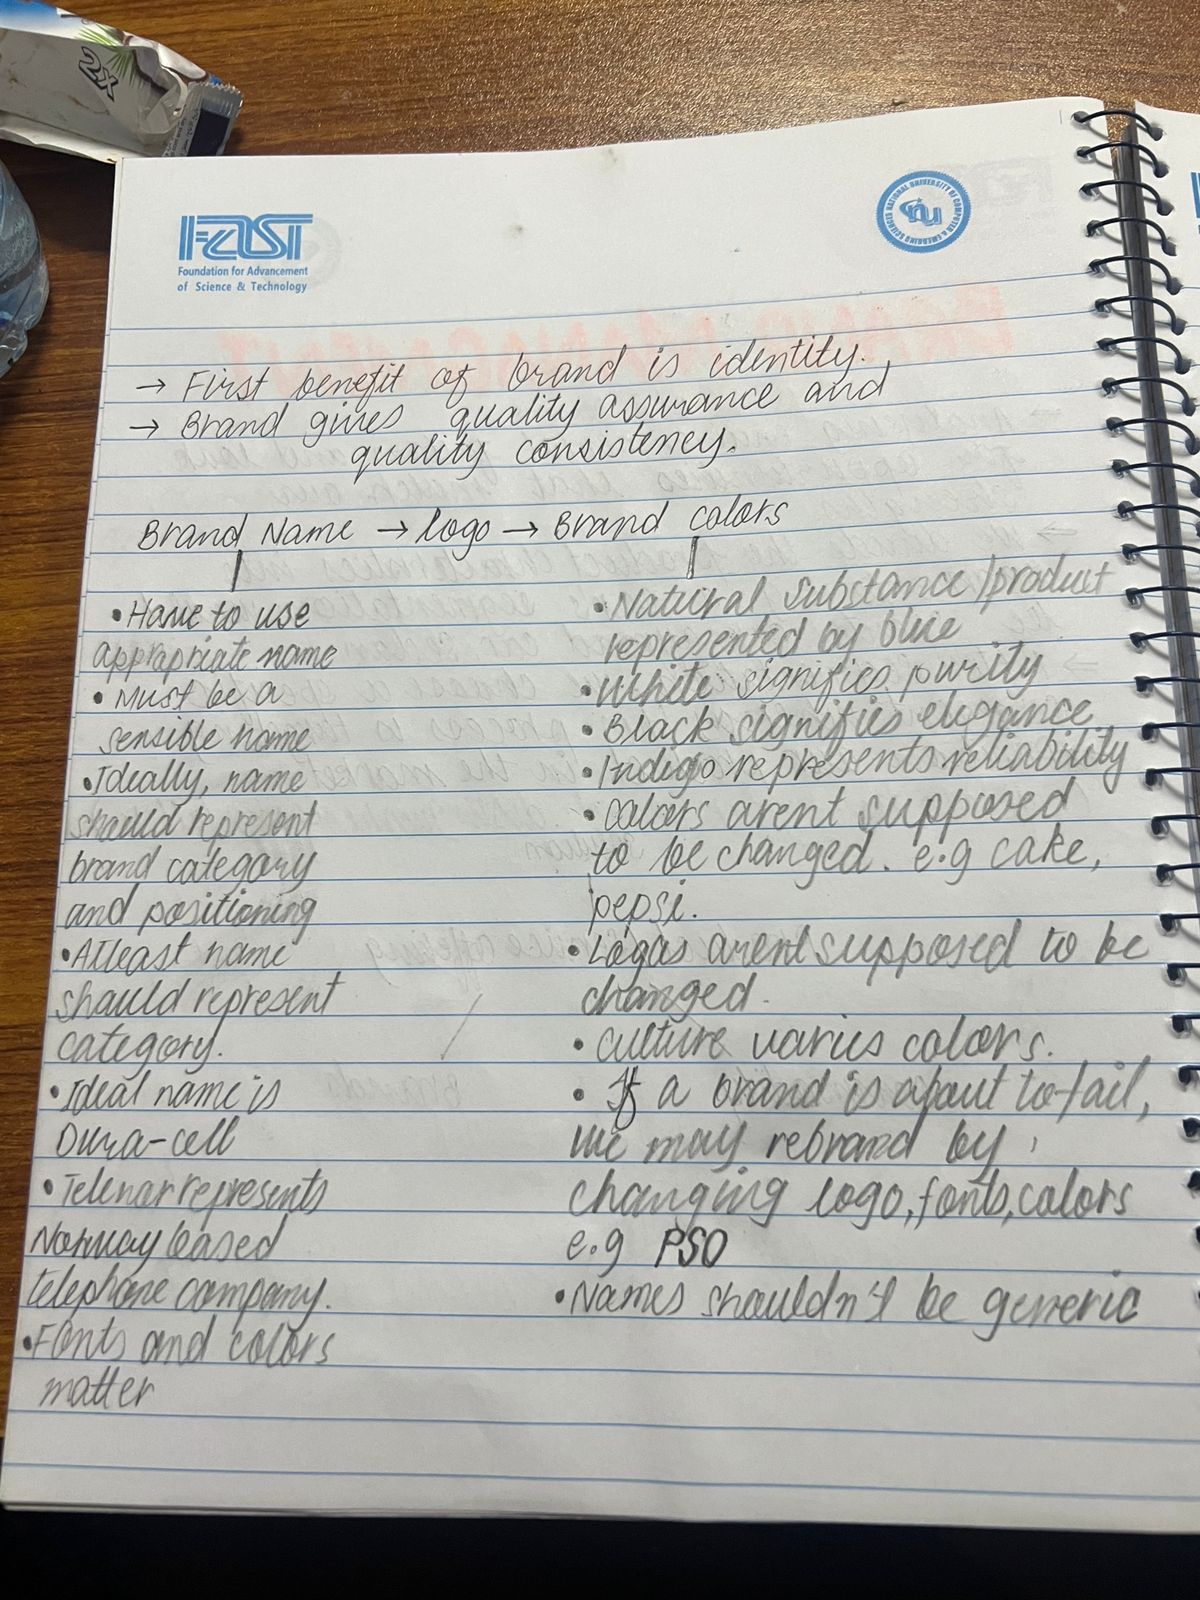 2x
FAST
Foundation for Advancement
of Science & Technology
NATIONAL UNIVERSITY OF COMPUTER & EMERGING SCIENCES
nu
→ First benefit of brand is identity.
→ Brand gives quality assurance and
quality consistency.
Brand Name → logo → Brand colors
• Have to use
appropriate name
• Must be a
sensible name
• Ideally, name
should represent
brand category
and positioning
• Atleast name
should represent
category.
• Ideal name is
Dura-cell
• Telenor represents
Norway based
telephone company.
• Fonts and colors
matter
• Natural substance/product
represented by blue
• White signifies purity
• Black signifies elegance
• Indigo represents reliability
• Colors arent supposed
to be changed. e.g coke,
pepsi.
• Logos arent supposed to be
changed.
• culture varies colors.
• If a brand is about to fail,
we may rebrand by
changing logo, fonts, colors
e.g PSO
• Names shouldn't be generic